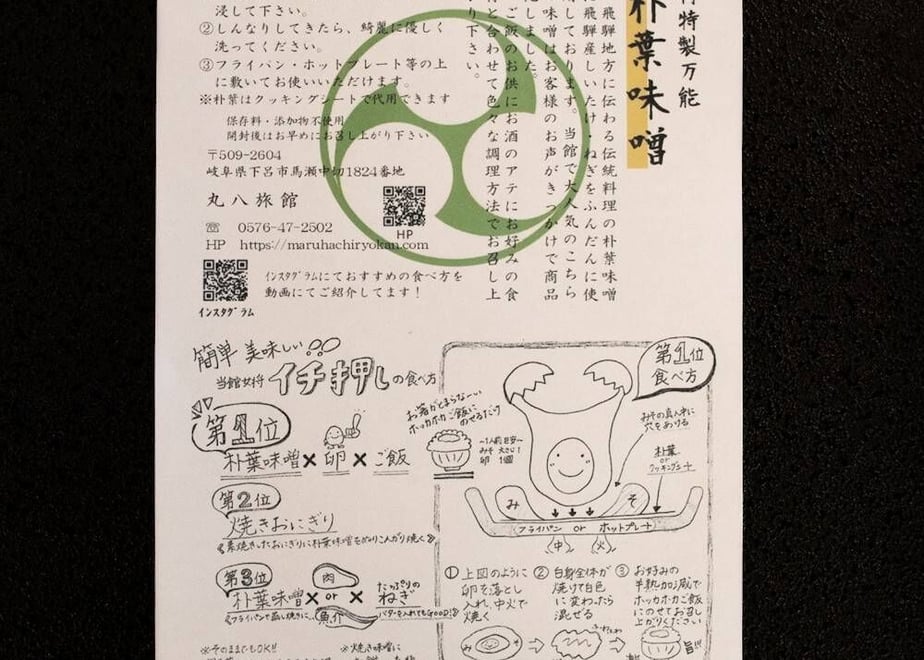 特製万能
朴葉味噌
飛騨地方に伝わる伝統料理の朴葉味噌
飛騨産しいたけ・ねぎをふんだんに使
しております。当館で大人気のこちら
味噌はお客様のお声がきっかけで商品
しました。
ご飯のお供にお酒のアテにお好みの食
と合わせて色々な調理方法でお召し上
り下さい。
浸して下さい。
②しんなりしてきたら、綺麗に優しく
洗ってください。
③フライパン・ホットプレート等の上
に敷いてお使いいただけます。
※朴葉はクッキングシートで代用できます
保存料・添加物不使用
開封後はお早めにお召し上がり下さい
〒509-2604
岐阜県下呂市馬瀬中切1824番地
丸八旅館
HP
☏ 0576-47-2502
HP https://maruhachiryokan.com
インスタグラムにておすすめの食べ方を
動画にてご紹介してます!
インスタグラム
簡単 美味しい
当館女将 イチ押しの食べ方
第1位
朴葉味噌×卵×ご飯
お箸がとまらなーい
ホッカホカご飯に
のせるだけ
~1人前目安~
みそ 大さじ1
卵 1個
第2位
焼きおにぎり
第3位
朴葉味噌× 肉 or 魚介 × たっぷりの ねぎ
バターを入れてもGOOD!
※そのままでもOK!!
※焼き味噌に
第1位
食べ方
みその真ん中に
穴をあける
朴葉
or
クッキングシート
み そ
フライパン or ホットプレート
(中) (火)
①上図のように
卵を落とし
入れ、中火で
焼く
②白身全体が
焼けて白色
に変わったら
混ぜる
③お好みの
半熟加減で
ホッカホカご飯
にのせてお召し
上がりください
旨!!